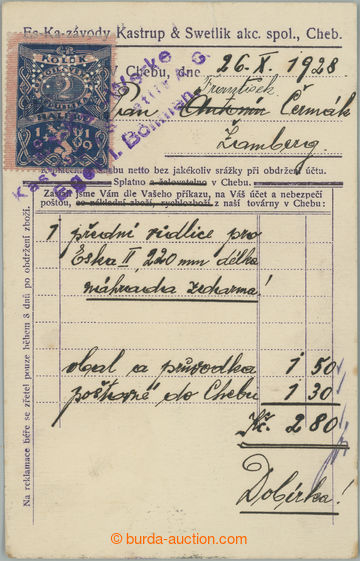 Es-Ka-závody Kastrup & Swetlik akc. spol., Cheb.
Chebu, dne 26. X. 1928
KOLEK
2
1919
Pan Frantisek
Antonín Čermák
Žamberg.
netto bez jakékoliv srážky při obdržení účtu.
Splatno a žalovatelno v Chebu.
Zaslali jsme Vám dle Vašeho příkazu, na Váš účet a nebezpečí
poštou, co nákladní zboží, rychlozboží z naší továrny v Chebu:
Eger i. Böhmen
Na reklamace béře se zřetel pouze během 8 dnů po obdržení zboží.
1 přední vidlice pro
Eska II, 220 mm délka
náhrada zdarma!
obal a průvodka 1 50
poštovné do Chebu 1 30
Kč. 2 80
Dobírka!
© burda-auction.com